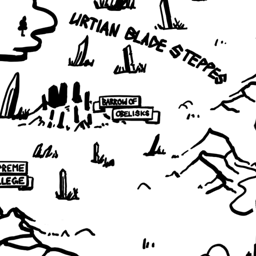 URTIAN BLADE STEPPES
BARROW OF
OBELISKS
PREME
LLEGE